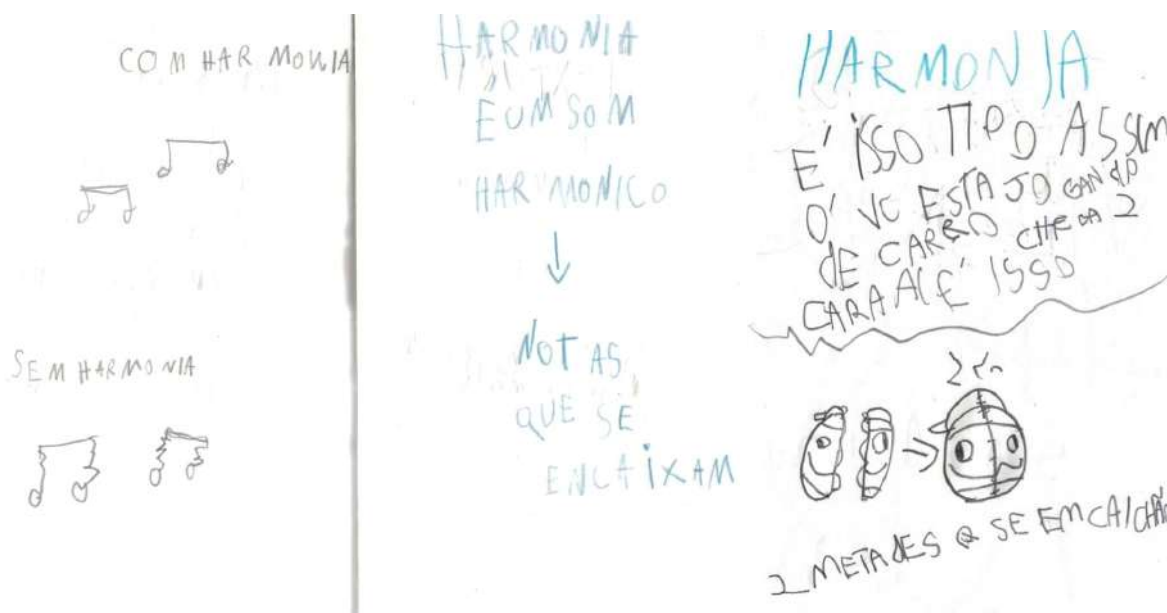 COM HARMONIA
SEM HARMONIA
HARMONIA
E UM SOM
HARMONICO
NOTAS
QUE SE
ENCAIXAM
HARMONIA
E' ISSO TIPO ASSIM
O' VC ESTA JOGANDO
DE CARRO CHEGA 2
CARA AI E' ISSO
2 METADES Q SE EMCAICHÃO